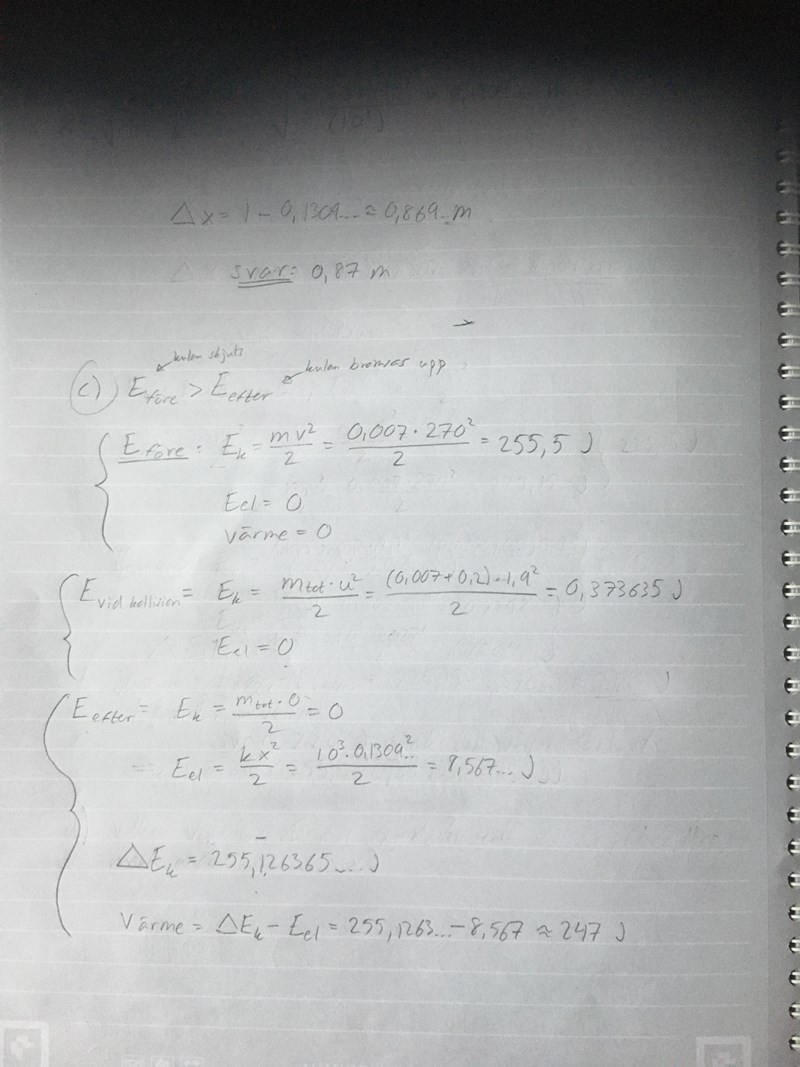 √ (10³)
Δx = 1 - 0,1309... ≈ 0,869.. m
svar: 0,87 m
kulan skjuts
kulan bromsas upp
c) E före > E efter
E före : Ek = mv²/2 = 0,007 · 270²/2 = 255,5 J
Eel = 0
värme = 0
E vid kollision = Ek = mtot · u²/2 = (0,007 + 0,2) · 1,9²/2 = 0,373635 J
Eel = 0
E efter = Ek = mtot · 0/2 = 0
Eel = kx²/2 = 10³ · 0,1309..²/2 = 8,567... J
ΔEk = 255,126365... J
Värme = ΔEk - Eel = 255,1263... - 8,567 ≈ 247 J